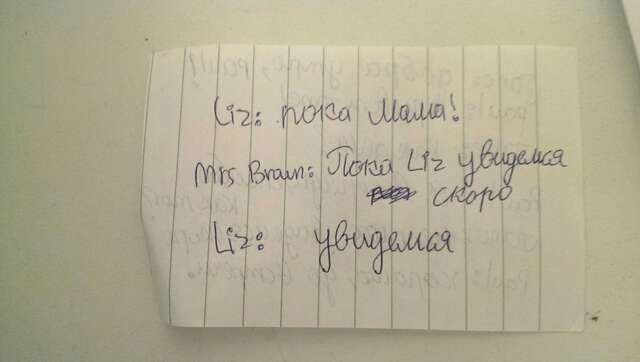 Liz: пока мама!
Mrs. Braun: Пока Liz увидемся
скоро
Liz: увидемся